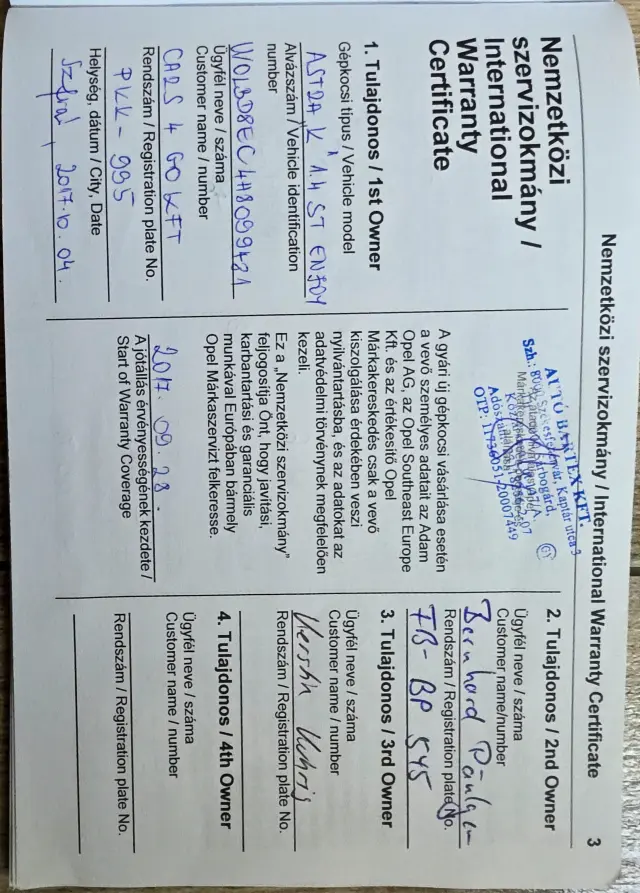 Nemzetközi szervizokmány / International Warranty Certificate
3
Nemzetközi
szervizokmány /
International
Warranty
Certificate
1. Tulajdonos / 1st Owner
Gépkocsi típus / Vehicle model
ASTRA K 1.4 ST ENJOY
Alvázszám / Vehicle identification
number
W0LBD8EC4H8099421
Ügyfél neve / száma
Customer name / number
CARS 4 GO KFT
Rendszám / Registration plate No.
PKK - 995
Helység, dátum / City, Date
2017.10.04.
AUTÓ BARTEX KFT.
Kaptár utca 3
OTP:
A gyári új gépkocsi vásárlása esetén
a vevő személyes adatait az Adam
Opel AG, az Opel Southeast Europe
Kft. és az értékesítő Opel
Márkakereskedés csak a vevő
kiszolgálása érdekében veszi
nyilvántartásba, és az adatokat az
adatvédelmi törvénynek megfelelően
kezeli.
Ez a „Nemzetközi szervizokmány”
feljogosítja Önt, hogy javítási,
karbantartási és garanciális
munkával Európában bármely
Opel Márkaszervizt felkeresse.
2017. 09. 28.
A jótállás érvényességének kezdete /
Start of Warranty Coverage
2. Tulajdonos / 2nd Owner
Ügyfél neve / száma
Customer name/number
Bernhard
Rendszám / Registration plate No.
FB - BP 545
3. Tulajdonos / 3rd Owner
Ügyfél neve / száma
Customer name / number
Rendszám / Registration plate No.
4. Tulajdonos / 4th Owner
Ügyfél neve / száma
Customer name / number
Rendszám / Registration plate No.